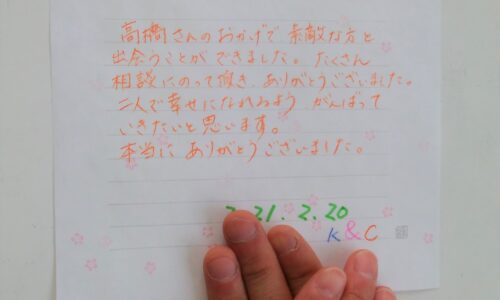 高橋さんのおかげで素敵な方と
出会うことができました。たくさん
相談にのって頂き、ありがとうございました。
二人で幸せになれるよう がんばって
いきたいと思います。
本当に ありがとうございました。
21.2.20
K&C